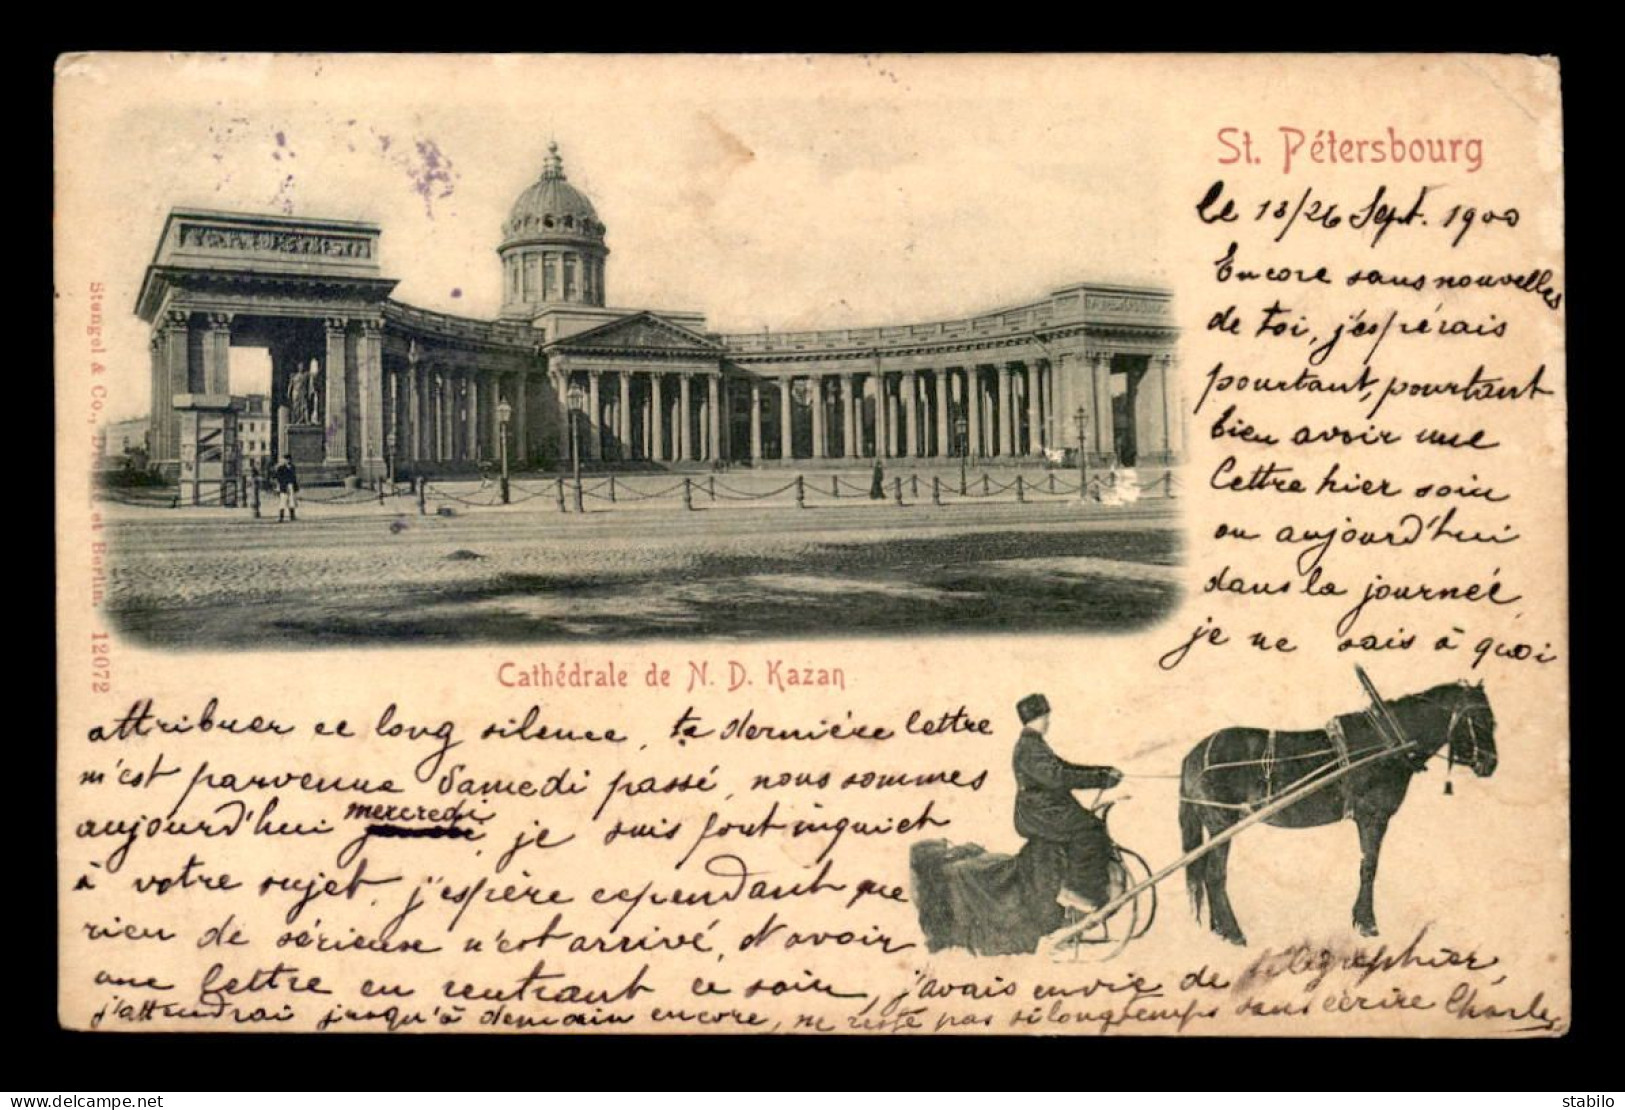 St. Pétersbourg
le 13/26 Sept. 1900
Encore sans nouvelles
de toi, j'espérais
pourtant, pourtant
bien avoir une
lettre hier soir
ou aujourd'hui
dans la journée
je ne sais à quoi
Stengel & Co., et Berlin. 12072
Cathédrale de N. D. Kazan
attribuer ce long silence, ta dernière lettre
m'est parvenue Samedi passé, nous sommes
aujourd'hui mercredi, je suis fort inquiet
à votre sujet, j'espère cependant que
rien de sérieuse n'est arrivé, d'avoir
une lettre en rentrant ce soir, j'avais envie de télégraphier,
j'attendrai jusqu'à demain encore, ne reste pas si longtemps sans écrire Charles
delcampe.net
stabilo